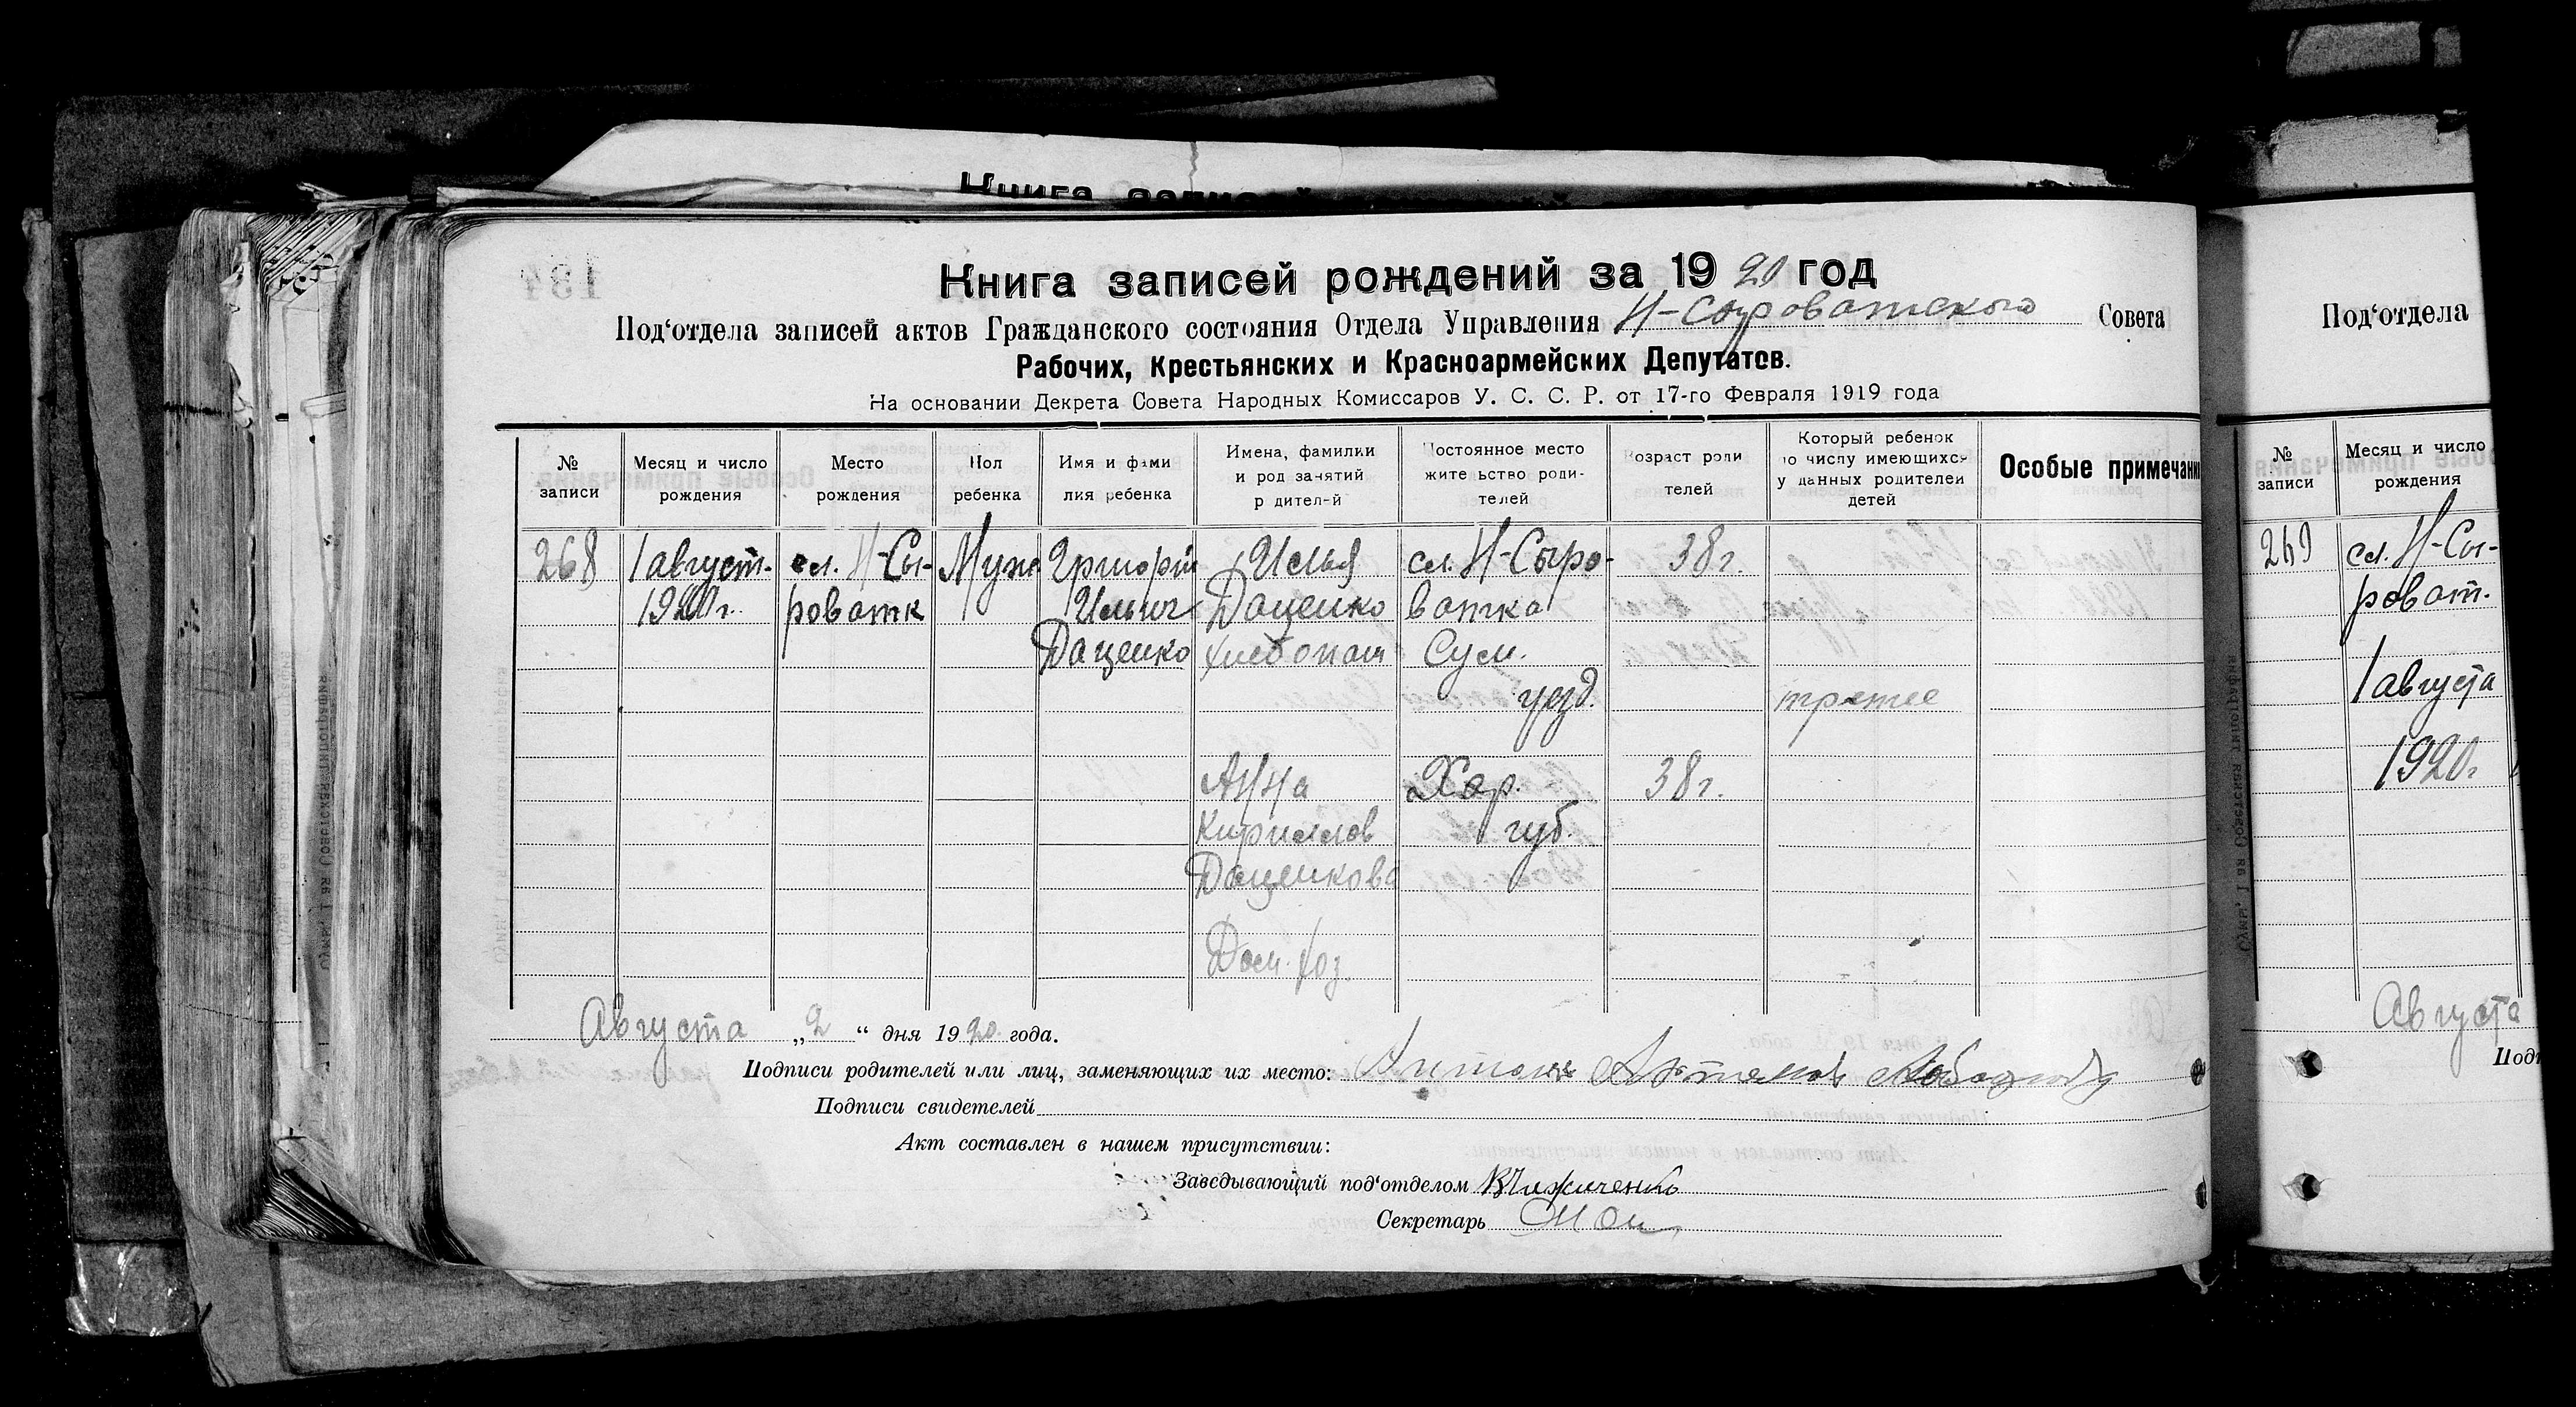 Книга записей
Книга записей рождений за 1920 год
Под‘отдела записей актов Гражданского состояния Отдела Управления Н-Сыроватского Совета
Рабочих, Крестьянских и Красноармейских Депутатов.
На основании Декрета Совета Народных Комиссаров У. С. С. Р. от 17-го Февраля 1919 года
№ записи
Месяц и число рождения
Место рождения
Пол ребенка
Имя и фамилия ребенка
Имена, фамилии и род занятий родителей
Постоянное место жительство родителей
Возраст родителей
Который ребенок по числу имеющихся у данных родителей детей
Особые примечани
268
1 август.
1920 г.
сл. Н-Сы-
роватк
Муж
Григорий
Ильич
Даценко
Илья
Даценко
хлебопаш
сл. Н-Сыро-
ватка
Сум.
уезд.
38 г.
третее
Анна
Кириллов
Даценкова
Дом. хоз.
Хар.
губ.
38 г.
Августа „2“ дня 1920 года.
Подписи родителей или лиц, заменяющих их место:
Подписи свидетелей
Акт составлен в нашем присутствии:
Заведывающий под‘отделом
Секретарь
Под‘отдела
№ записи
Месяц и число рождения
269
сл. Н-Сы-
роват.
1 августа
1920 г.
Августа
Подп